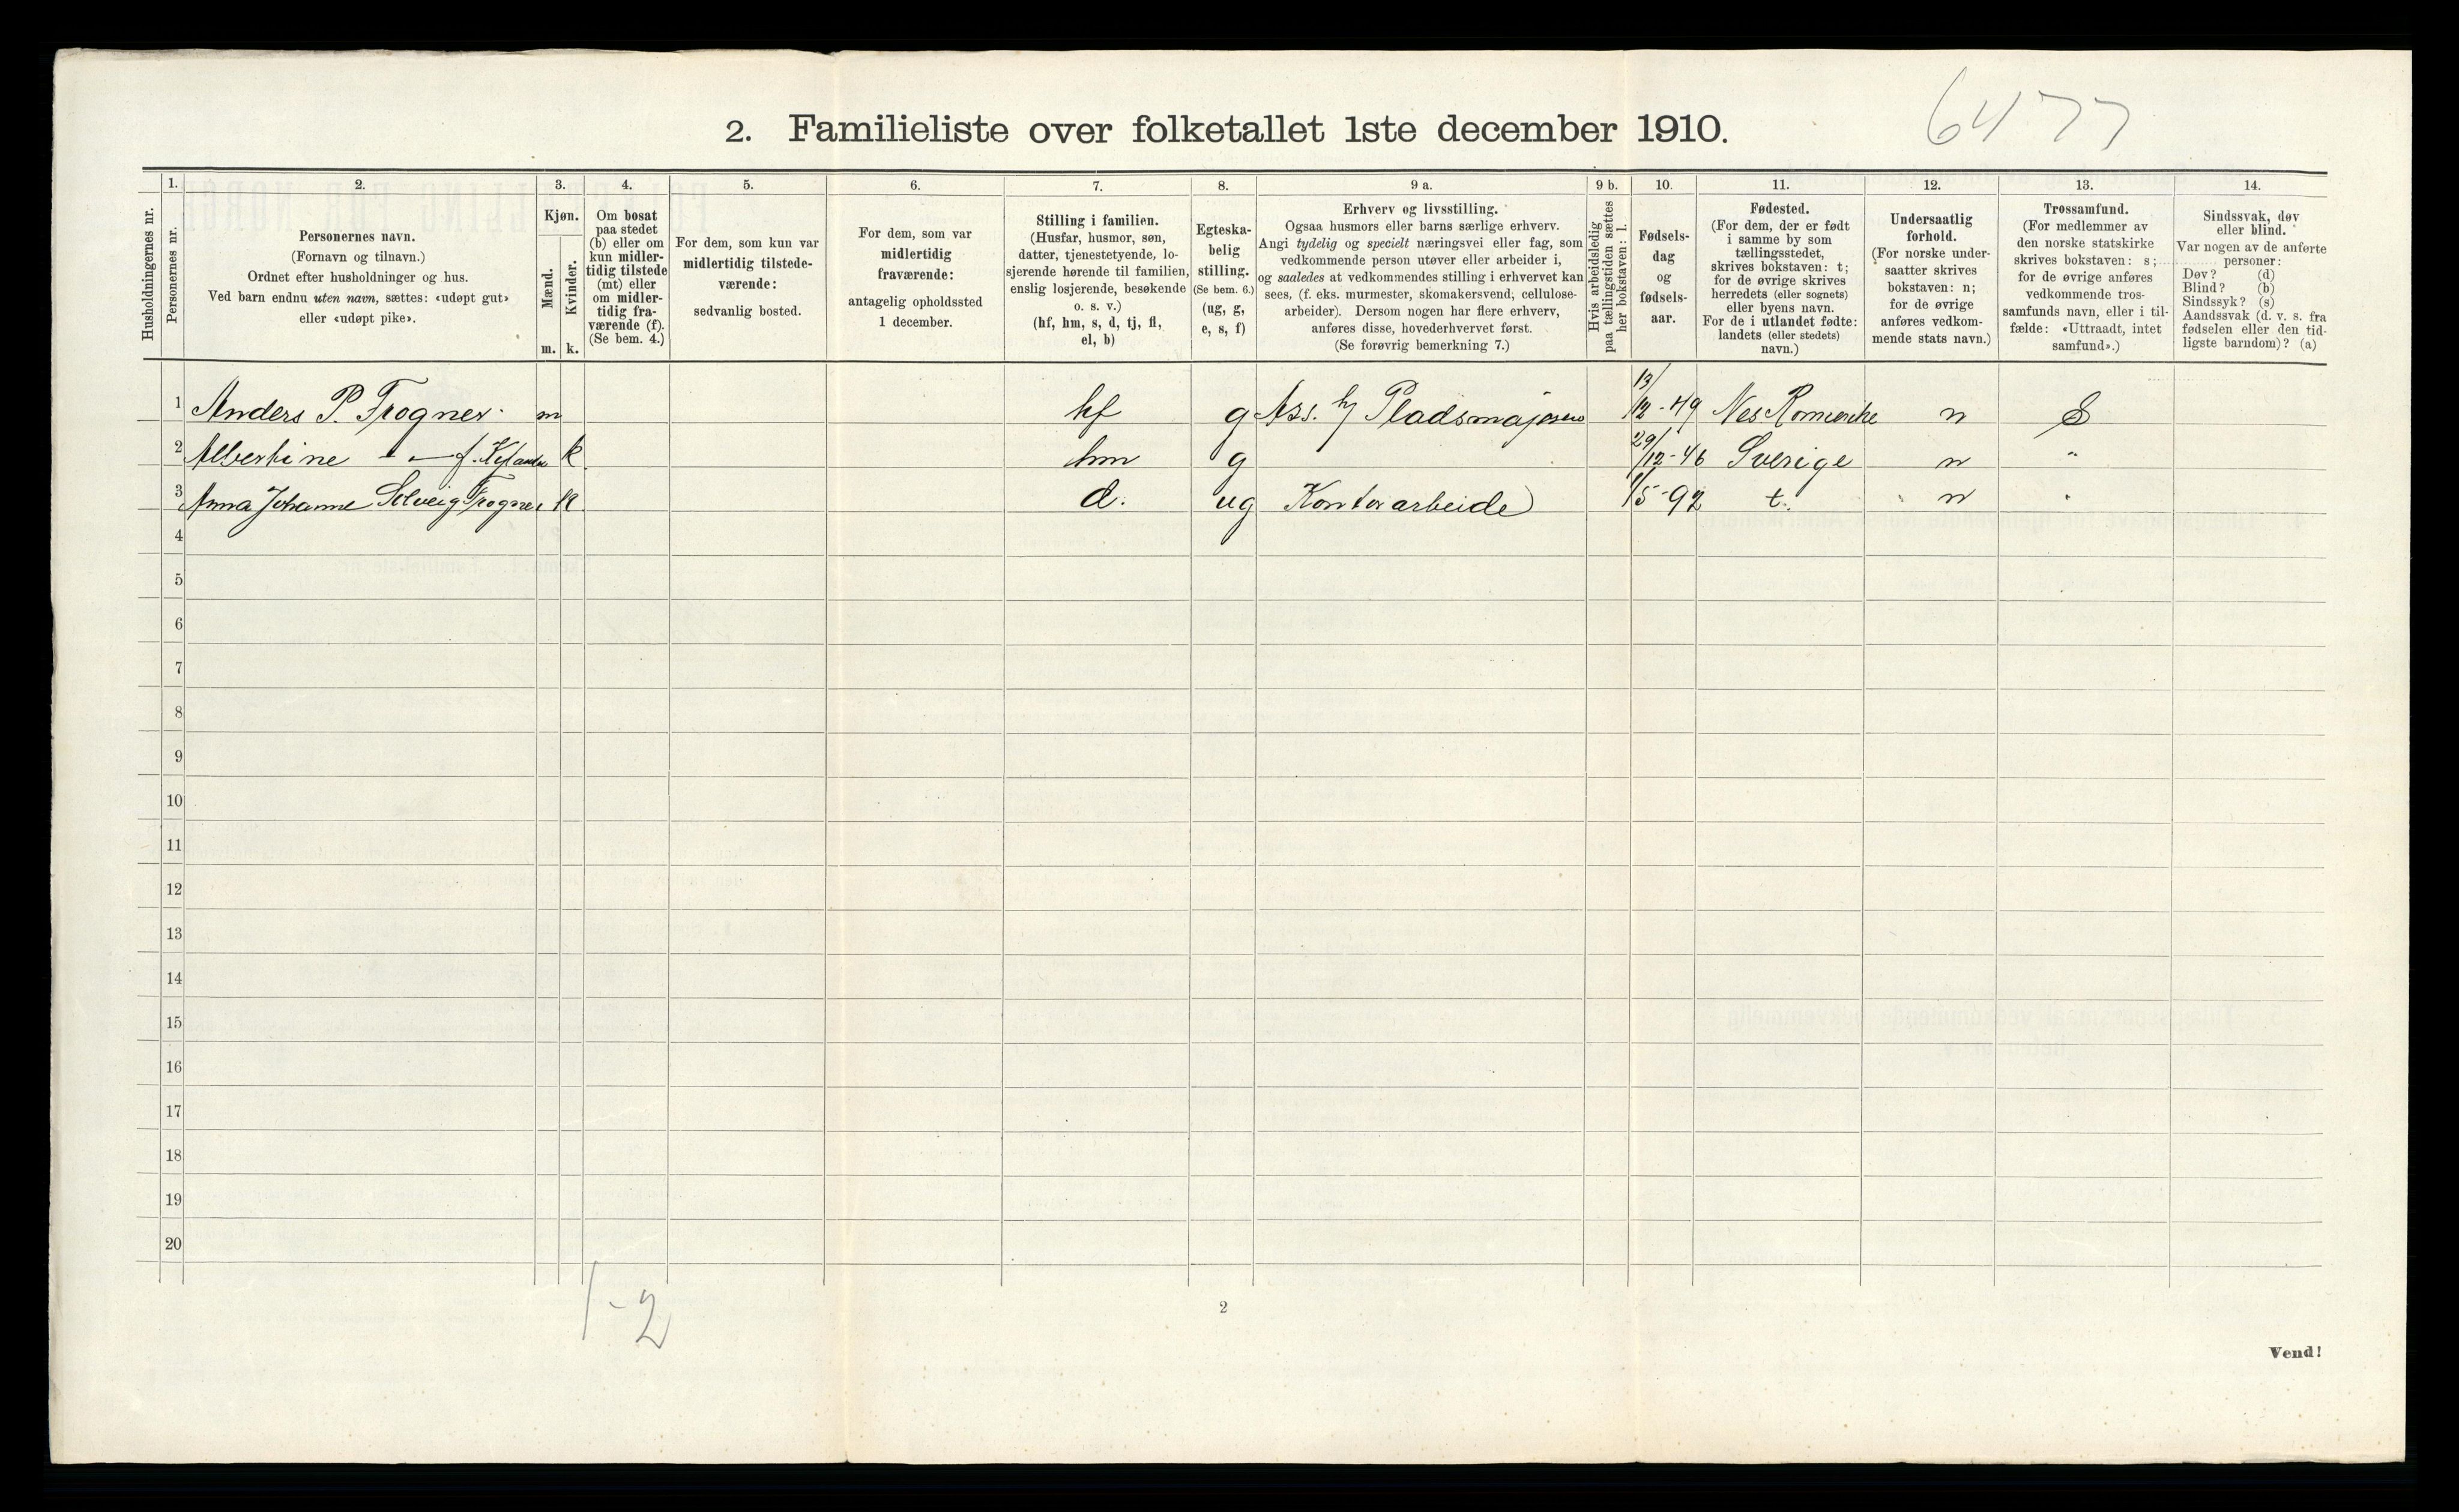 6477
2. Familieliste over folketallet 1ste december 1910.
Husholdningernes nr.
1.
Personernes nr.
2.
Personernes navn.
(Fornavn og tilnavn.)
Ordnet efter husholdninger og hus.
Ved barn endnu uten navn, sættes: «udøpt gut»
eller «udøpt pike».
3.
Kjøn.
Mænd.
Kvinder.
m. k.
4.
Om bosat
paa stedet
(b) eller om
kun midler-
tidig tilstede
(mt) eller
om midler-
tidig fra-
værende (f).
(Se bem. 4.)
5.
For dem, som kun var
midlertidig tilstede-
værende:
sedvanlig bosted.
6.
For dem, som var
midlertidig
fraværende:
antagelig opholdssted
1 december.
7.
Stilling i familien.
(Husfar, husmor, søn,
datter, tjenestetyende, lo-
sjerende hørende til familien,
enslig losjerende, besøkende
o. s. v.)
(hf, hm, s, d, tj, fl,
el, b)
8.
Egteska-
belig
stilling.
(Se bem. 6.)
(ug, g,
e, s, f)
9 a.
Erhverv og livsstilling.
Ogsaa husmors eller barns særlige erhverv.
Angi tydelig og specielt næringsvei eller fag, som
vedkommende person utøver eller arbeider i,
og saaledes at vedkommendes stilling i erhvervet kan
sees, (f. eks. murmester, skomakersvend, cellulose-
arbeider). Dersom nogen har flere erhverv,
anføres disse, hovederhvervet først.
(Se forøvrig bemerkning 7.)
9 b.
Hvis arbeidsledig
paa tællingstiden sættes
her bokstaven: l.
10.
Fødsels-
dag
og
fødsels-
aar.
11.
Fødested.
(For dem, der er født
i samme by som
tællingsstedet,
skrives bokstaven: t;
for de øvrige skrives
herredets (eller sognets)
eller byens navn.
For de i utlandet fødte:
landets (eller stedets)
navn.)
12.
Undersaatlig
forhold.
(For norske under-
saatter skrives
bokstaven: n;
for de øvrige
anføres vedkom-
mende stats navn.)
13.
Trossamfund.
(For medlemmer av
den norske statskirke
skrives bokstaven: s;
for de øvrige anføres
vedkommende tros-
samfunds navn, eller i til-
fælde: «Uttraadt, intet
samfund».)
14.
Sindssvak, døv
eller blind.
Var nogen av de anførte
personer:
Døv? (d)
Blind? (b)
Sindssyk? (s)
Aandssvak (d. v. s. fra
fødselen eller den tid-
ligste barndom)? (a)
1 Anders P. Frogner m hf g Ass. Pladsmajoren 13/12-49 Nes Romerike n S
2 Albertine — f. k hm g 29/12-46 Sverige n "
3 Anna Johanne Solveig Frogner k d. ug Kontorarbeide 1/5-92 t. n "
4
5
6
7
8
9
10
11
12
13
14
15
16
17
18
19
20
1-2
2
Vend!